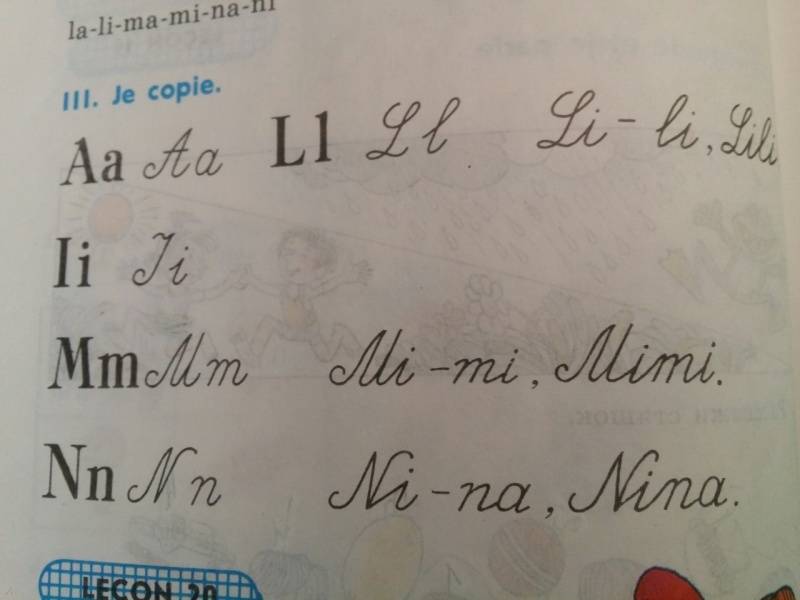 la-li-ma-mi-na-ni
III. Je copie.
Aa Aa Ll Ll Li-li, Lili
Ii Ii
Mm Mm Mi-mi, Mimi.
Nn Nn Ni-na, Nina.
LEÇON 20